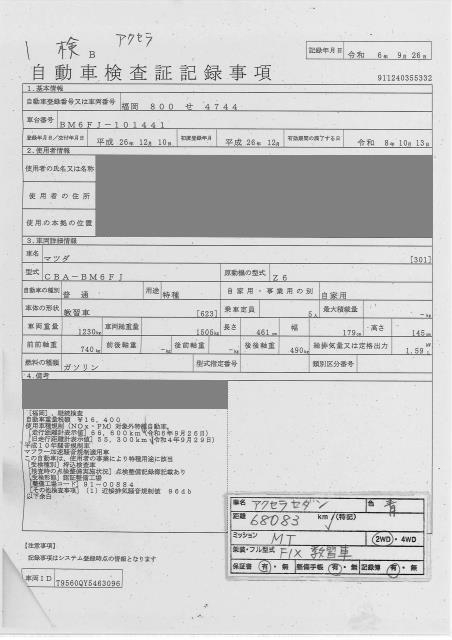 1 検 B アクセラ
記録年月日 令和 6年 9月 26日
自動車検査証記録事項
911240355332
1.基本情報
自動車登録番号又は車両番号 福岡 800 せ 4744
車台番号 BM6FJ-101441
登録年月日/交付年月日 平成 26年 12月 10日 初度登録年月 平成 26年 12月 有効期間の満了する日 令和 8年 10月 13日
2.使用者情報
使用者の氏名又は名称
使用者の住所
使用の本拠の位置
3.車両詳細情報
車名 マツダ [301]
型式 CBA-BM6FJ 原動機の型式 Z6
自動車の種別 普通 用途 特種 自家用・事業用の別 自家用
車体の形状 教習車 [623] 乗車定員 5人 最大積載量 -kg
車両重量 1230kg 車両総重量 1505kg 長さ 461cm 幅 179cm 高さ 145cm
前前軸重 740kg 前後軸重 -kg 後前軸重 -kg 後後軸重 490kg 総排気量又は定格出力 1.59 kW L
燃料の種類 ガソリン 型式指定番号 類別区分番号
4.備考
[福岡],継続検査
自動車重量税額 ¥16,400
使用車種規制(NOx・PM)対象外特種自動車
[走行距離計表示値] 66,600km(令和6年9月26日)
[旧走行距離計表示値] 55,300km(令和4年9月29日)
平成10年騒音規制車
マフラー加速騒音規制適用車
この自動車は、使用者の事業により特種用途に該当
[受検種別] 持込検査車
[検査時の点検整備実施状況] 点検整備記録簿記載あり
[受検形態] 認証整備工場
[整備工場コード] 91-00884
[その他検査事項] (1) 近接排気騒音規制値 96db
以下余白
車名 アクセラセダン 色 青
距離 68083 km/(特記)
ミッション MT 2WD・4WD
架装・フル型式 FIX 教習車
保証書 有・無 整備手帳 有・無 記録簿 有・無
【注意事項】
記録事項はシステム登録時点の情報となります
車両ID T9560QY5463096